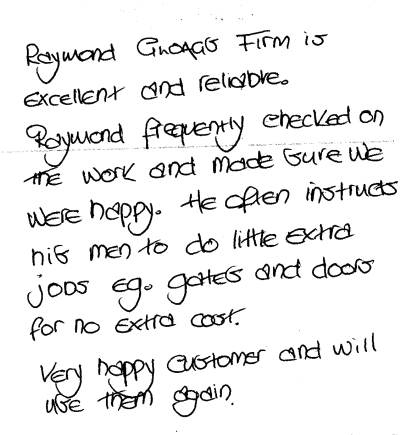 Raymond Firm is
excellent and reliable.
Raymond frequently checked on
the work and made sure we
were happy. He often instructs
his men to do little extra
jobs eg. gates and doors
for no extra cost.
Very happy customer and will
use them again.